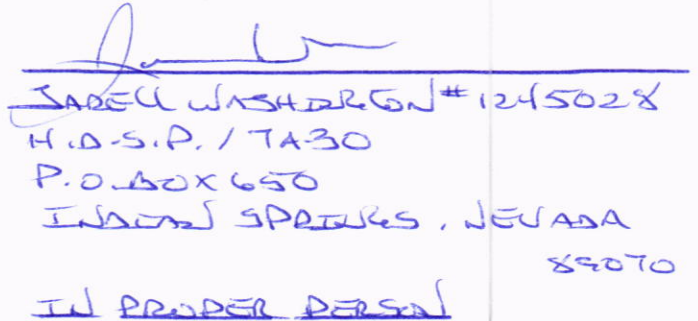 JARELL WASHINGTON #1245028
H.D.S.P. / 7A30
P.O. BOX 650
INDIAN SPRINGS, NEVADA
89070
IN PROPER PERSON